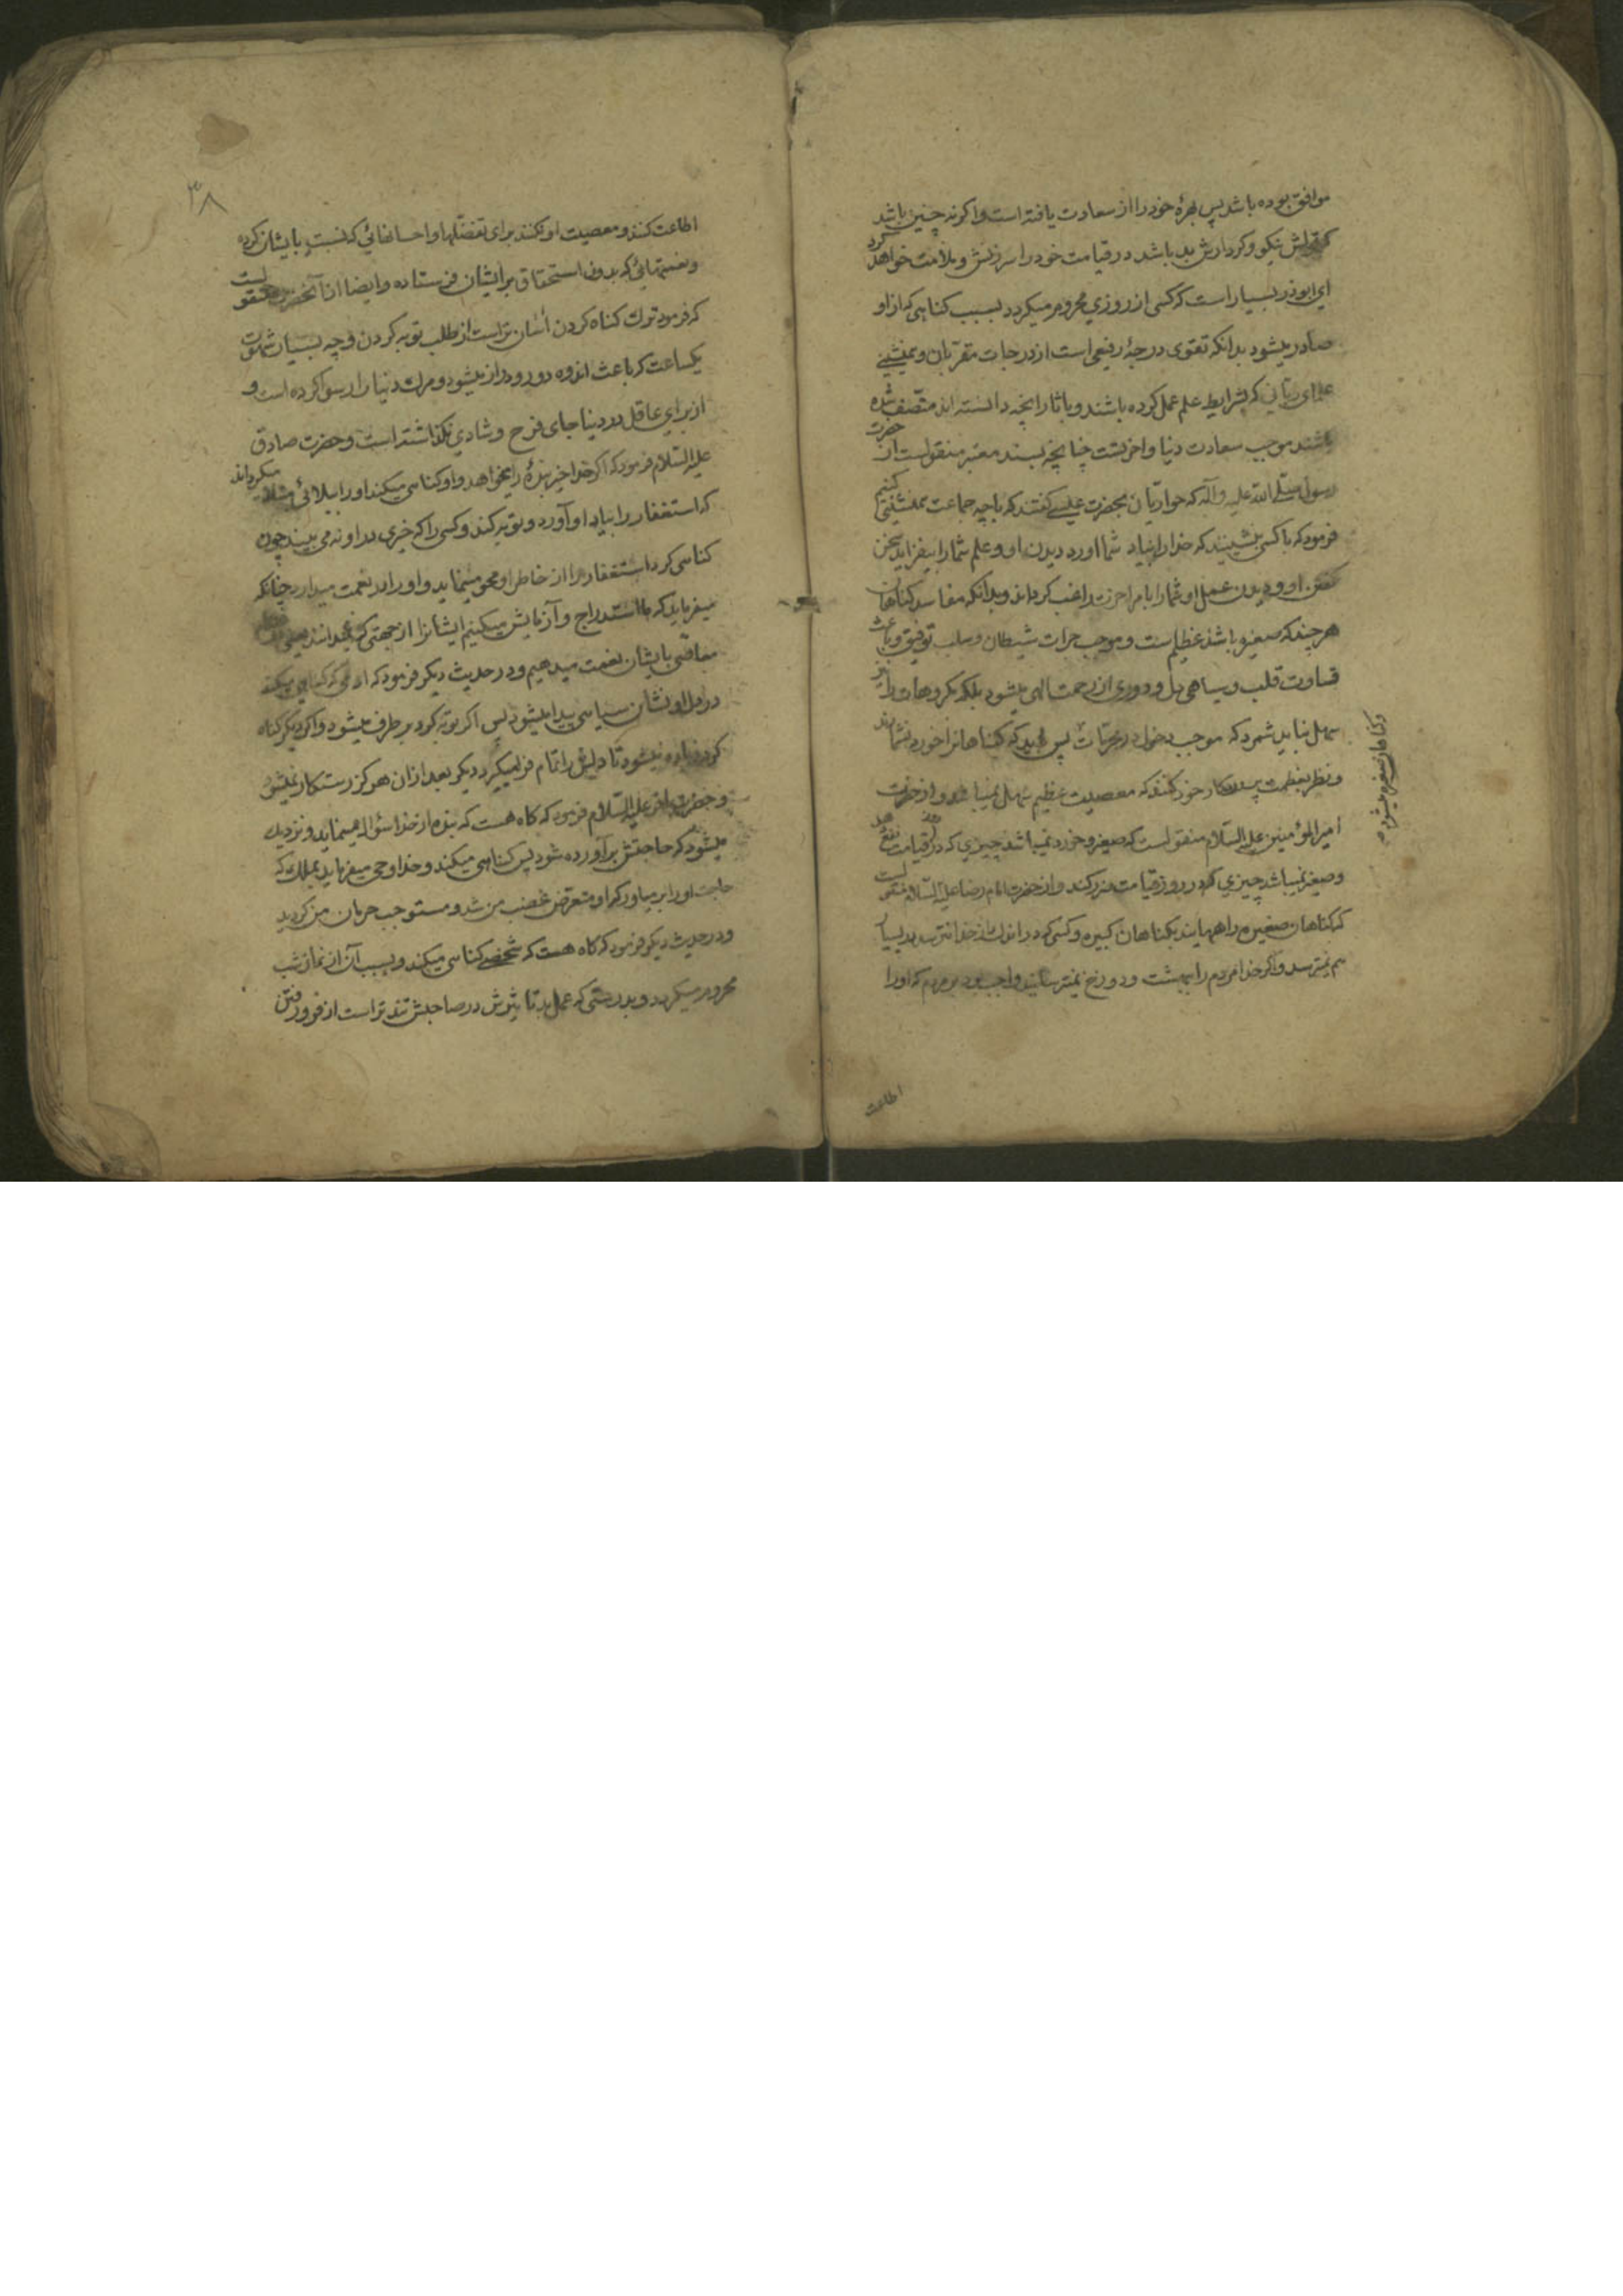 موافق بوده باشد پس بهرهٔ خود را از سعادت یافته است و اکر نه چنین باشد
که قولش نیکو و کردارش بد باشد در قیامت خود را سرزنش و ملامت خواهد کرد
ای ابوذر بسیار است که کسی از روزی محروم میکردد بسبب کناهی که از او
صادر میشود بدانکه تقوی درجهٔ رفیعی است از درجات مقربان و همنشینی
علمای ربانی که بشرایط علم عمل کرده باشند و باثار انچه دانسته اند متصف شده
باشند موجب سعادت دنیا و اخرتست چنانچه بسند معتبر منقولست از حضرت
رسول صلی الله علیه و آله که حواریان بحضرت عیسی کفتند که با چه جماعت همنشینی کنیم
فرمود که با کسی بنشینید که خدا را بیاد شما اورد دیدن او و علم شما را بیفزاید سخن
کفتن او و دیدن عمل او شما را بامر اخرت راغب کرداند و بدانکه مفاسد کناهان
هرچند که صغیره باشد عظیم است و موجب جرات شیطان و سلب توفیق و باعث
قساوت قلب و سیاهی دل و دوری از رحمت الهی میشود بلکه مکروهات را نیز
سهل نباید شمرد که موجب دخول در محرمات پس باید که کناهانرا خورد نشمارند
و نظر بعظمت پروردکار خود کنند که معصیت عظیم سهل نمیباشد و از حضرت
امیر المؤمنین علیه السلام منقولست که صغیر و خورد نمیباشد چیزی که در قیامت نفع دهد
و صغیر نمیباشد چیزی که در روز قیامت ضرر کند و از حضرت امام رضا علیه السلام منقولست
که کناهان صغیره راههایند بکناهان کبیره و کسی که در اندک از خدا نترسد در بسیار
هم نمیترسد و اکر خدا مردم را ببهشت و دوزخ نمیترسانید واجب بود بر مردم که او را
و کناهان صغیره میشود
اطاعت
۳۸
اطاعت کنند و معصیت او نکنند برای تفضلها و احسانهائی که نسبت بایشان کرده
و نعمتهائی که بدون استحقاق برایشان فرستاده و ایضا از آنحضرت منقولست
که فرمود ترک کناه کردن آسان تر است از طلب توبه کردن و چه بسیار شهوت
یکساعت که باعث اندوه دور و دراز میشود و مرک دنیا را رسوا کرده است و
از برای عاقل در دنیا جای فرح و شادی نکذاشته است و حضرت صادق
علیه السلام فرمود که اکر خدا خیر بندهٔ را میخواهد و او کناهی میکند او را ببلائی مبتلا میکرداند
که استغفار را بیاد او آورد و توبه کند و کسی را که خیری در او نه می بیند چون
کناهی کرد استغفار را از خاطر او محو مینماید و او را در نعمت میدارد چنانکه
میفرماید که ما استدراج و آزمایش میکنیم ایشانرا از جهتی که نمیدانند یعنی
معاصی بایشان نعمت میدهیم و در حدیث دیکر فرمود که ادمی که کناهی میکند
در دل او نشان سیاهی پیدا میشود پس اکر توبه کرد بر طرف میشود و اکر دیکر کناه
کرد زیاده میشود تا دلش را تمام فرا میکیرد دیکر بعد از ان هرکز رستکار نمیشود
و حضرت باقر علیه السلام فرمود که کاه هست که بنده از خدا سؤال مینماید و نزدیک
میشود که حاجتش برآورده شود پس کناهی میکند و خدا وحی میفرماید بملک که
حاجت او را بر میاور که او متعرض غضب من شد و مستوجب حرمان من کردید
و در حدیث دیکر فرمود که کاه هست که شخصی کناهی میکند و بسبب آن از نماز شب
محروم میکردد و بدرستی که عمل بد تاثیرش در صاحبش تند تر است از فرو رفتن